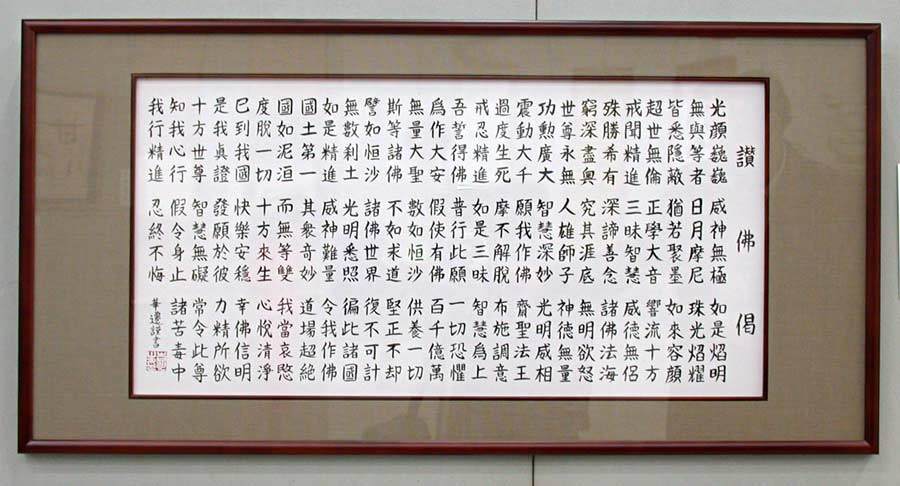 讃佛偈
光顔巍巍 威神無極 如是焰明
無與等者 日月摩尼 珠光焰耀
皆悉隱蔽 猶若聚墨 如來容顔
超世無倫 正覺大音 響流十方
戒聞精進 三昧智慧 威德無侶
殊勝希有 深諦善念 諸佛法海
窮深盡奥 究其涯底 無明欲怒
世尊永無 人雄師子 神德無量
功勲廣大 智慧深妙 光明威相
震動大千 願我作佛 齊聖法王
過度生死 靡不解脱 布施調意
戒忍精進 如是三昧 智慧爲上
吾誓得佛 普行此願 一切恐懼
爲作大安 假使有佛 百千億萬
無量大聖 數如恒沙 供養一切
斯等諸佛 不如求道 堅正不却
譬如恒沙 諸佛世界 復不可計
無數刹土 光明悉照 徧此諸國
如是精進 威神難量 令我作佛
國土第一 其衆奇妙 道場超絶
國如泥洹 而無等雙 我當哀愍
度脱一切 十方來生 心悦清淨
已到我國 快樂安穩 幸佛信明
是我眞證 發願於彼 力精所欲
十方世尊 智慧無礙 常令此尊
知我心行 假令身止 諸苦毒中
我行精進 忍終不悔